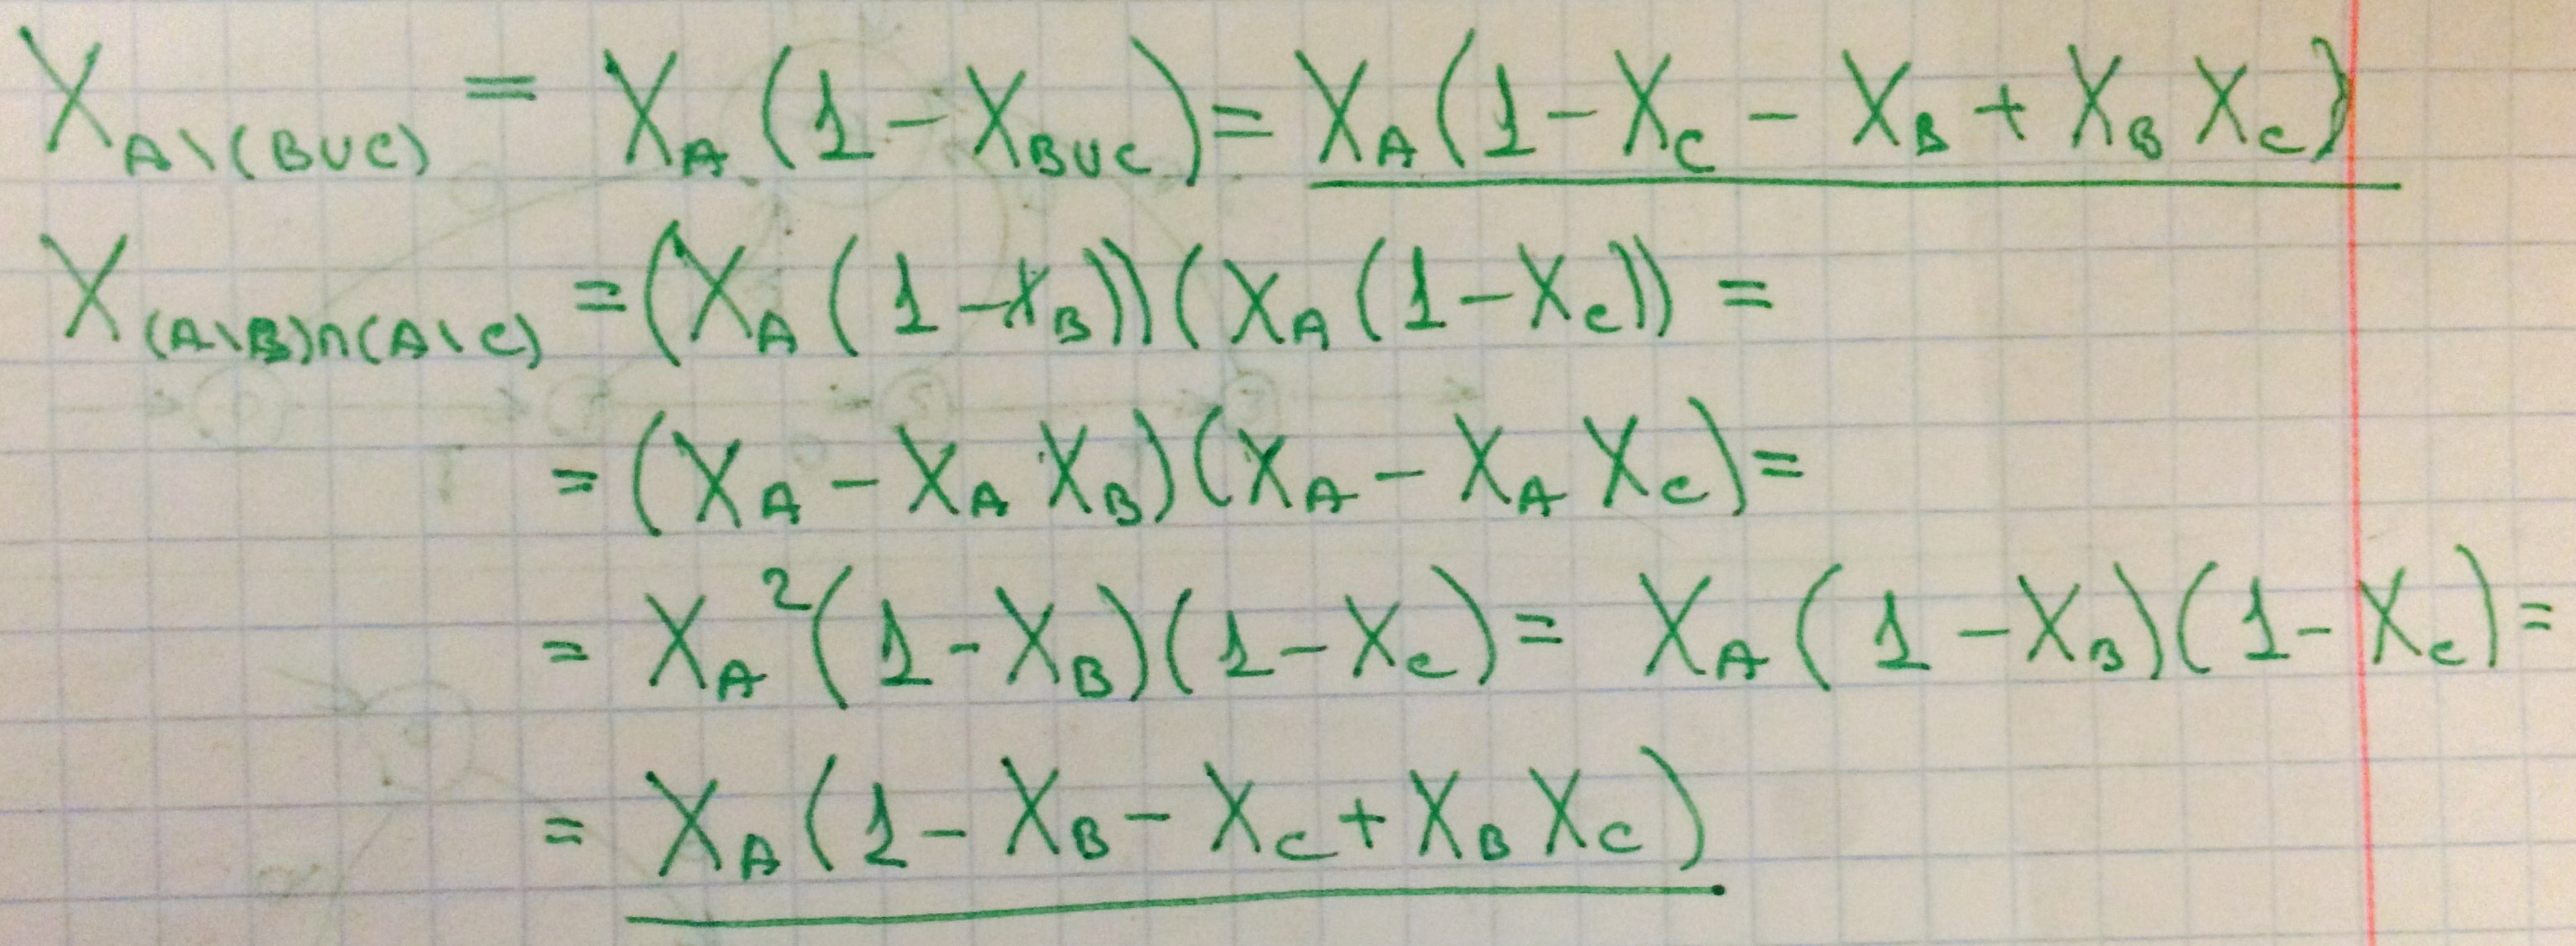 X_{A\(B∪C)} = X_A (1 - X_{B∪C}) = X_A (1 - X_C - X_B + X_B X_C)
X_{(A\B)∩(A\C)} = (X_A (1 - X_B)) (X_A (1 - X_C)) =
= (X_A - X_A X_B) (X_A - X_A X_C) =
= X_A^2 (1 - X_B) (1 - X_C) = X_A (1 - X_B) (1 - X_C) =
= X_A (1 - X_B - X_C + X_B X_C)